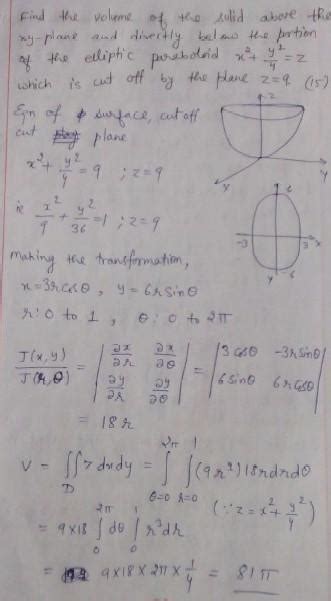 Find the volume of the solid above the
xy-plane and directly below the portion
of the elliptic paraboloid x² + y²/4 = z
which is cut off by the plane z=9 (15)
Eqn of surface, cut off
cut plane
x² + y²/4 = 9 ; z=9
ie x²/9 + y²/36 = 1 ; z=9
z
y
x
6
-3
3
x
y
-6
making the transformation,
x=3rcosθ, y=6rsinθ
r: 0 to 1, θ: 0 to 2π
J(x,y)/J(r,θ) = |∂x/∂r ∂x/∂θ; ∂y/∂r ∂y/∂θ| = |3cosθ -3rsinθ; 6sinθ 6rcosθ|
= 18r
V = ∬_D z dxdy = ∫_{θ=0}^{2π} ∫_{r=0}^{1} (9r²)18rdrdθ
(∵ z = x² + y²/4)
= 9×18 ∫_0^{2π} dθ ∫_0^1 r³dr
= 9×18×2π×1/4 = 81π